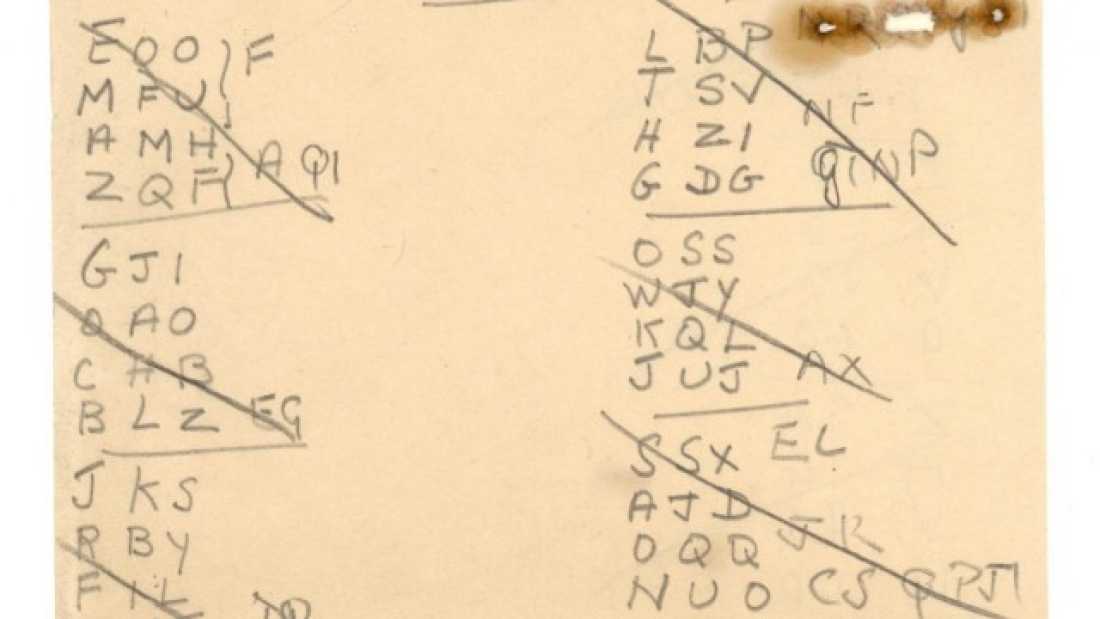 E O O } F
M F U
A M H } A Q I
Z Q F
G J I
O A O
C H B
B L Z EG
J K S
R B Y
F I L
L B P
T S V N F
H Z I
G D G P
O S S
W J Y
K Q L
J U J AX
S S X EL
A J D
O Q Q JR
N U O CS